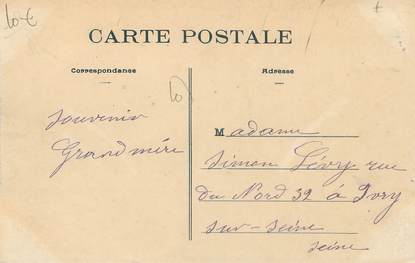 10€
CARTE POSTALE
Correspondance
Adresse
Souvenir
Grand mére
Madame
Simon Lévy rue
du Nord 32 à Ivry
sur-Seine
Seine